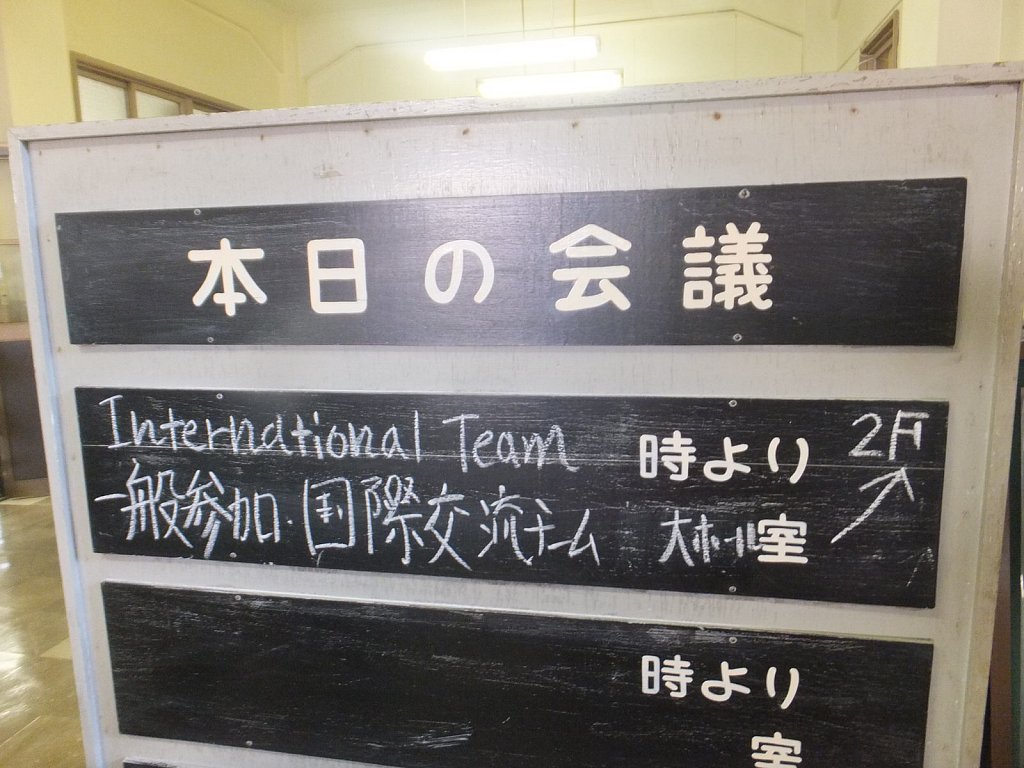 本日の会議
International Team 時より 2F
一般参加・国際交流チーム 大ホール室
時より
室